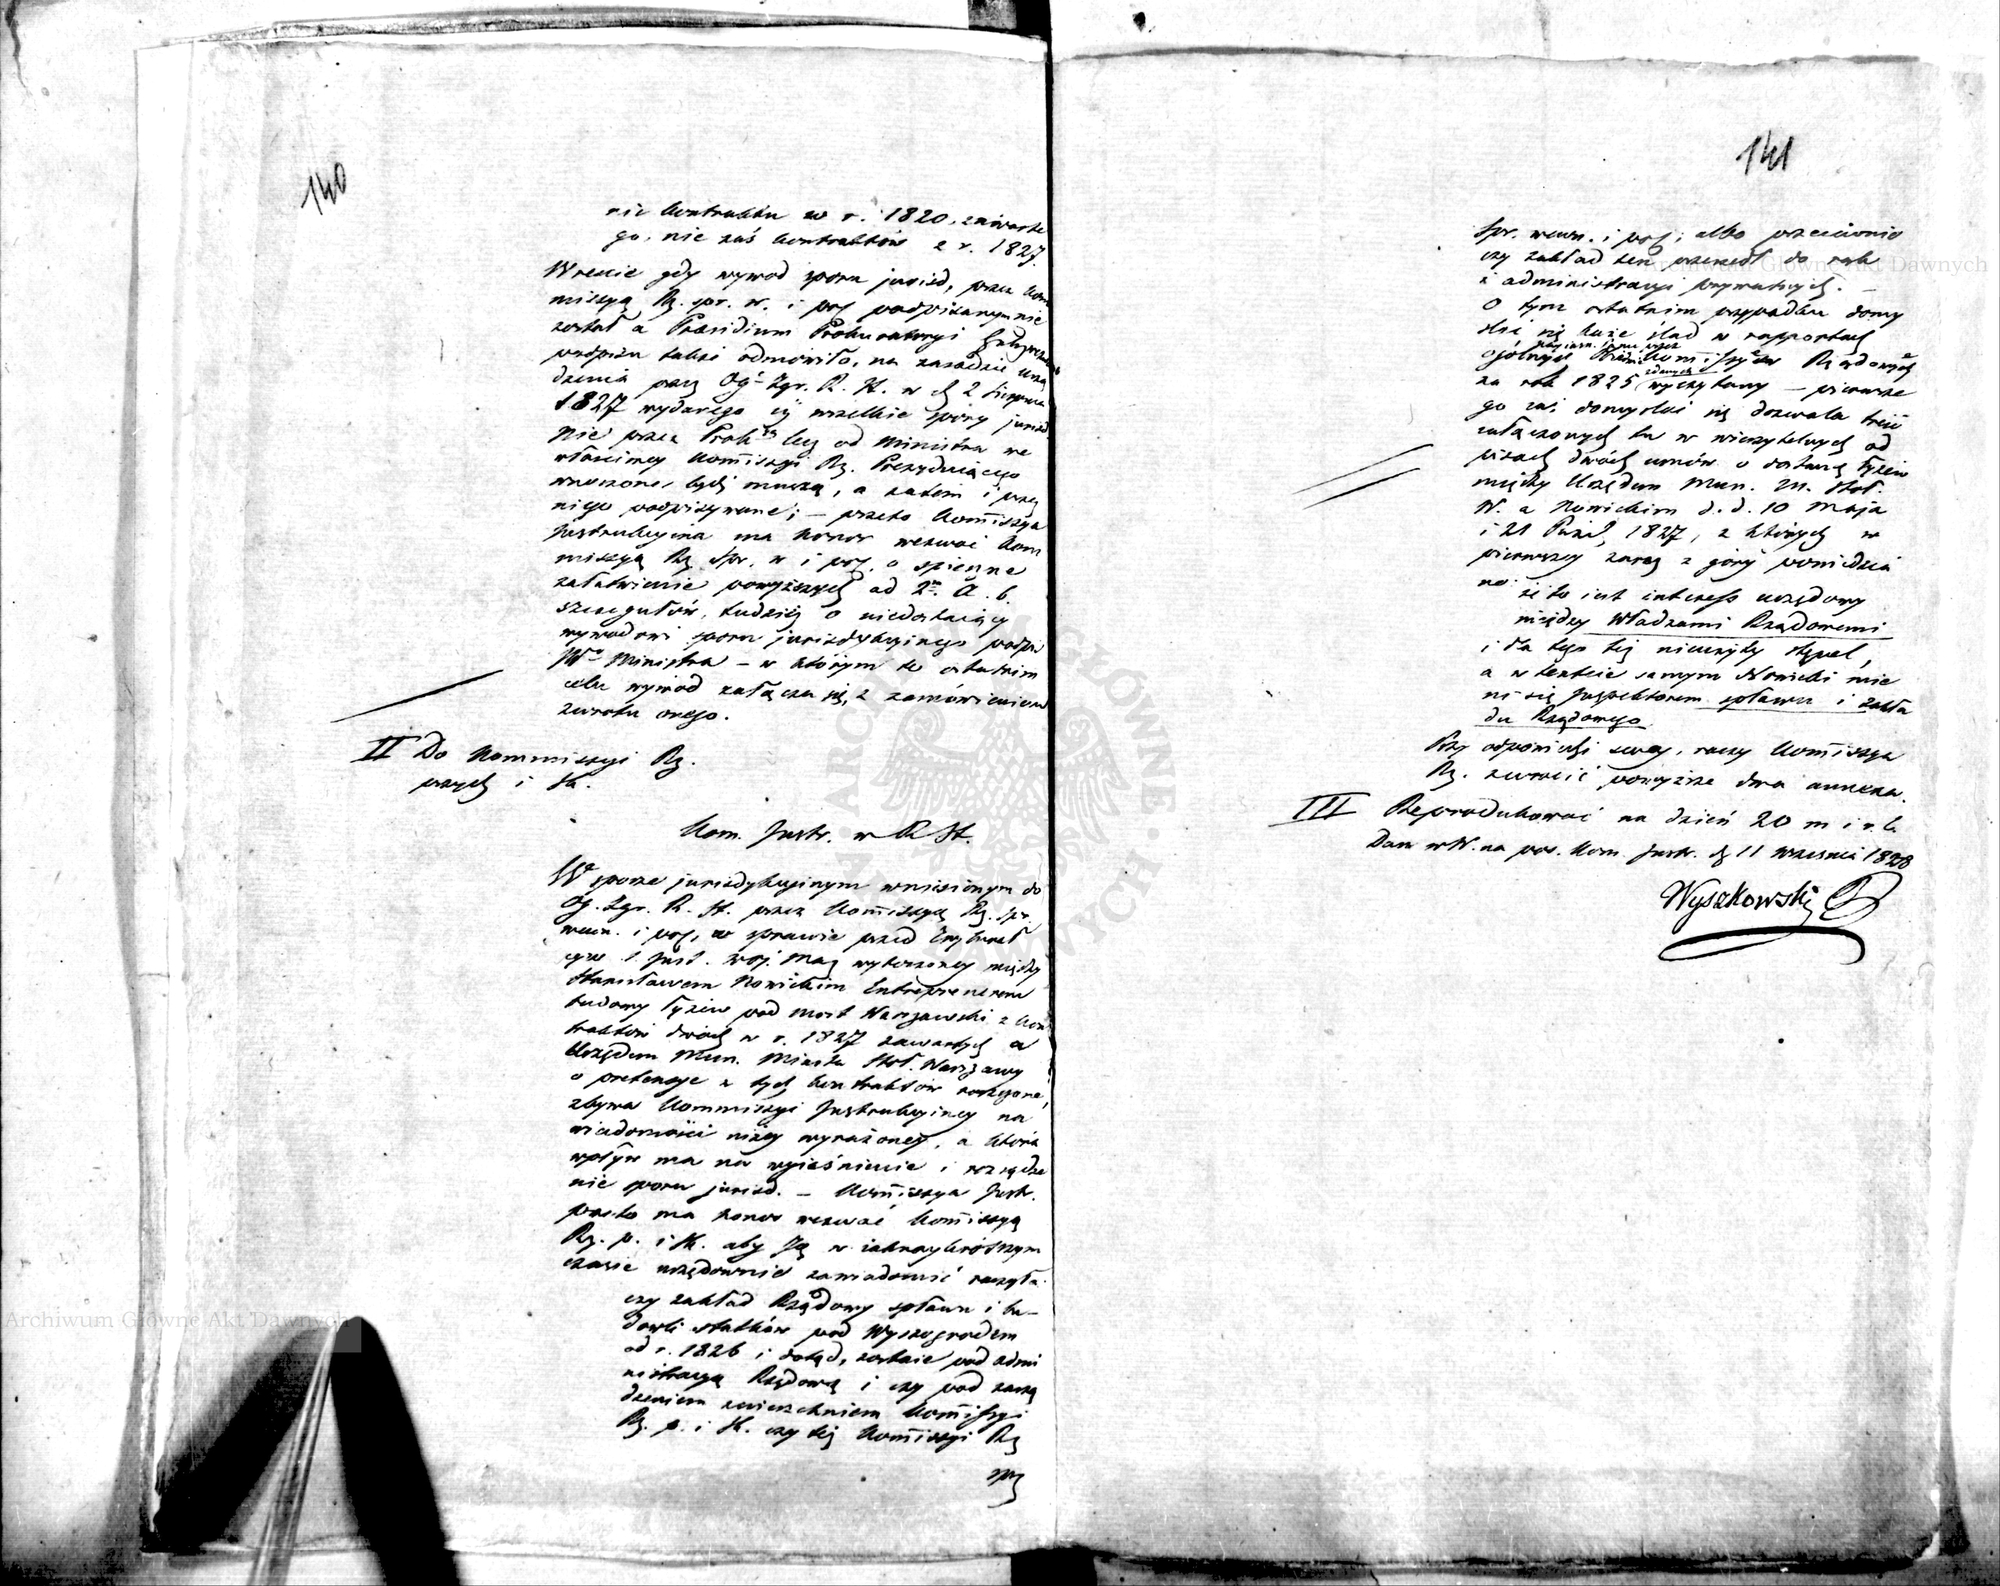 140
nie kontraktu w r. 1820. zawarte
go, nie zaś kontraktów z r. 1827.
Wreście gdy wywod sporu jurisd, przez Kom
missyą Rz. spr. w. i pol podpisanym nie
został a Prezidium Prokuratoryi
podpisu takoż odmówiło, na zasadzie urzą
dzenia przez Ogl Zgr. R. St. w d 2 Sierpnia
1827 wydanego iż wszelkie spory jurisd
nie przez Prok lecz od Ministra we
właściwey Kommissyi Rz. Prezyduiącego
wnoszone bydź muszą, a zatem i przez
niego podpisywane; – przeto Kommissya
Instrukcyina ma honor wezwać Kom
missyą Rz. Spr. w i pol. o spieszne
załatwienie powyższych ad 2m. a. b.
szczegułów, tudzież o niedostaiący
wywodowi sporu jurisdykcyinego podpis
JWo Ministra – w którym to ostatnim
celu wywód załącza się, z zamówieniem
zwrotu onego.
II Do Kommissyi Rz.
przych i Sk.
Kom. Instr. w R St.
W sporze jurisdykcyinym wniesionym do
Og. Zgr. R. St. przez Kommissyą Rz. Spr.
wewn. i pol, w sprawie przed Trybunał
cyw 1 Inst. Woj. Maz wytoczoney między
Stanisławem Nowickim Entreprenerem
budowy łyżew pod most Warszawski z kon
traktów dwóch w r. 1827 zawartych a
Urzędem Mun. Miasta Stoł. Warszawy
o pretensye z tych kontraktów roszczone,
zbywa Kommissyi Instrukcyiney na
wiadomości niżey wyrażoney, a która
wpływ ma na wyiaśnienie i rozsądze
nie sporu jurisd. – Kommissya Instr.
przeto ma honor wezwać Kommissyą
Rz. p. i Sk. aby Ją w iaknaykrótszym
czasie urzędownie zawiadomić raczyła.
czy zakład Rządowy spławu i bu–
dowli statków pod Wyszogrodem
od r. 1826 i dotąd, zostaie pod admi
nistracyą Rządową i czy pod zarzą
dzeniem zwierzchniem Kommissyi
Rz. p. i Sk. czy też Kommissyi Rz
spr
141
Spr. wewn. i pol; albo przeciwnie
czy zakład ten przeszedł do rąk
i administracyi prywatnych. –
O tym ostatnim przypadku domy
slać się każe ślad w rapportach
ogólnych Kommissyów Rządowych
zdanych
za rok 1825 wyczytany – pierwsze
go zaś domyslać się dozwala treść
załączonych tu w wierzytelnych od
pisach dwóch umów o dostawę łyżew
między Urzędem Mun. M. Stoł.
W. a Nowickim d. d. 10 Maja
i 21 Paźd, 1827, z których w
pierwszey zaraz z góry powiedzia
no iż to iest interess urzędowy
między Władzami Rządowemi
i dla tego też nieużyty stępel,
a w texcie samym Nowicki mie
ni się Inspektorem spławu i zakła
du Rządowego.
Przy odpowiedzi swey, raczy Kommissya
Rz. zwrócić powyższe dwa annexa.
III Reprodukować na dzień 20 m i r. b.
Dan w W. na pos. Kom. Instr. d 11 Września 1828
Wyszkowski